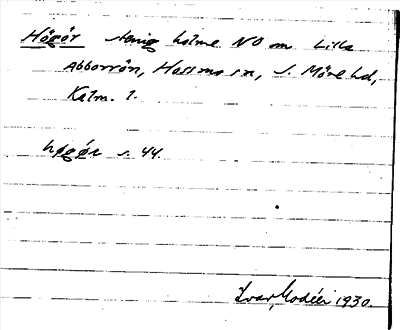 Högör stenig holme NO om Lilla
Abborrön, Hossmo sn, S. Möre hd,
Kalm. l.
høgør s. 44.
Ivar Modéer 1930.